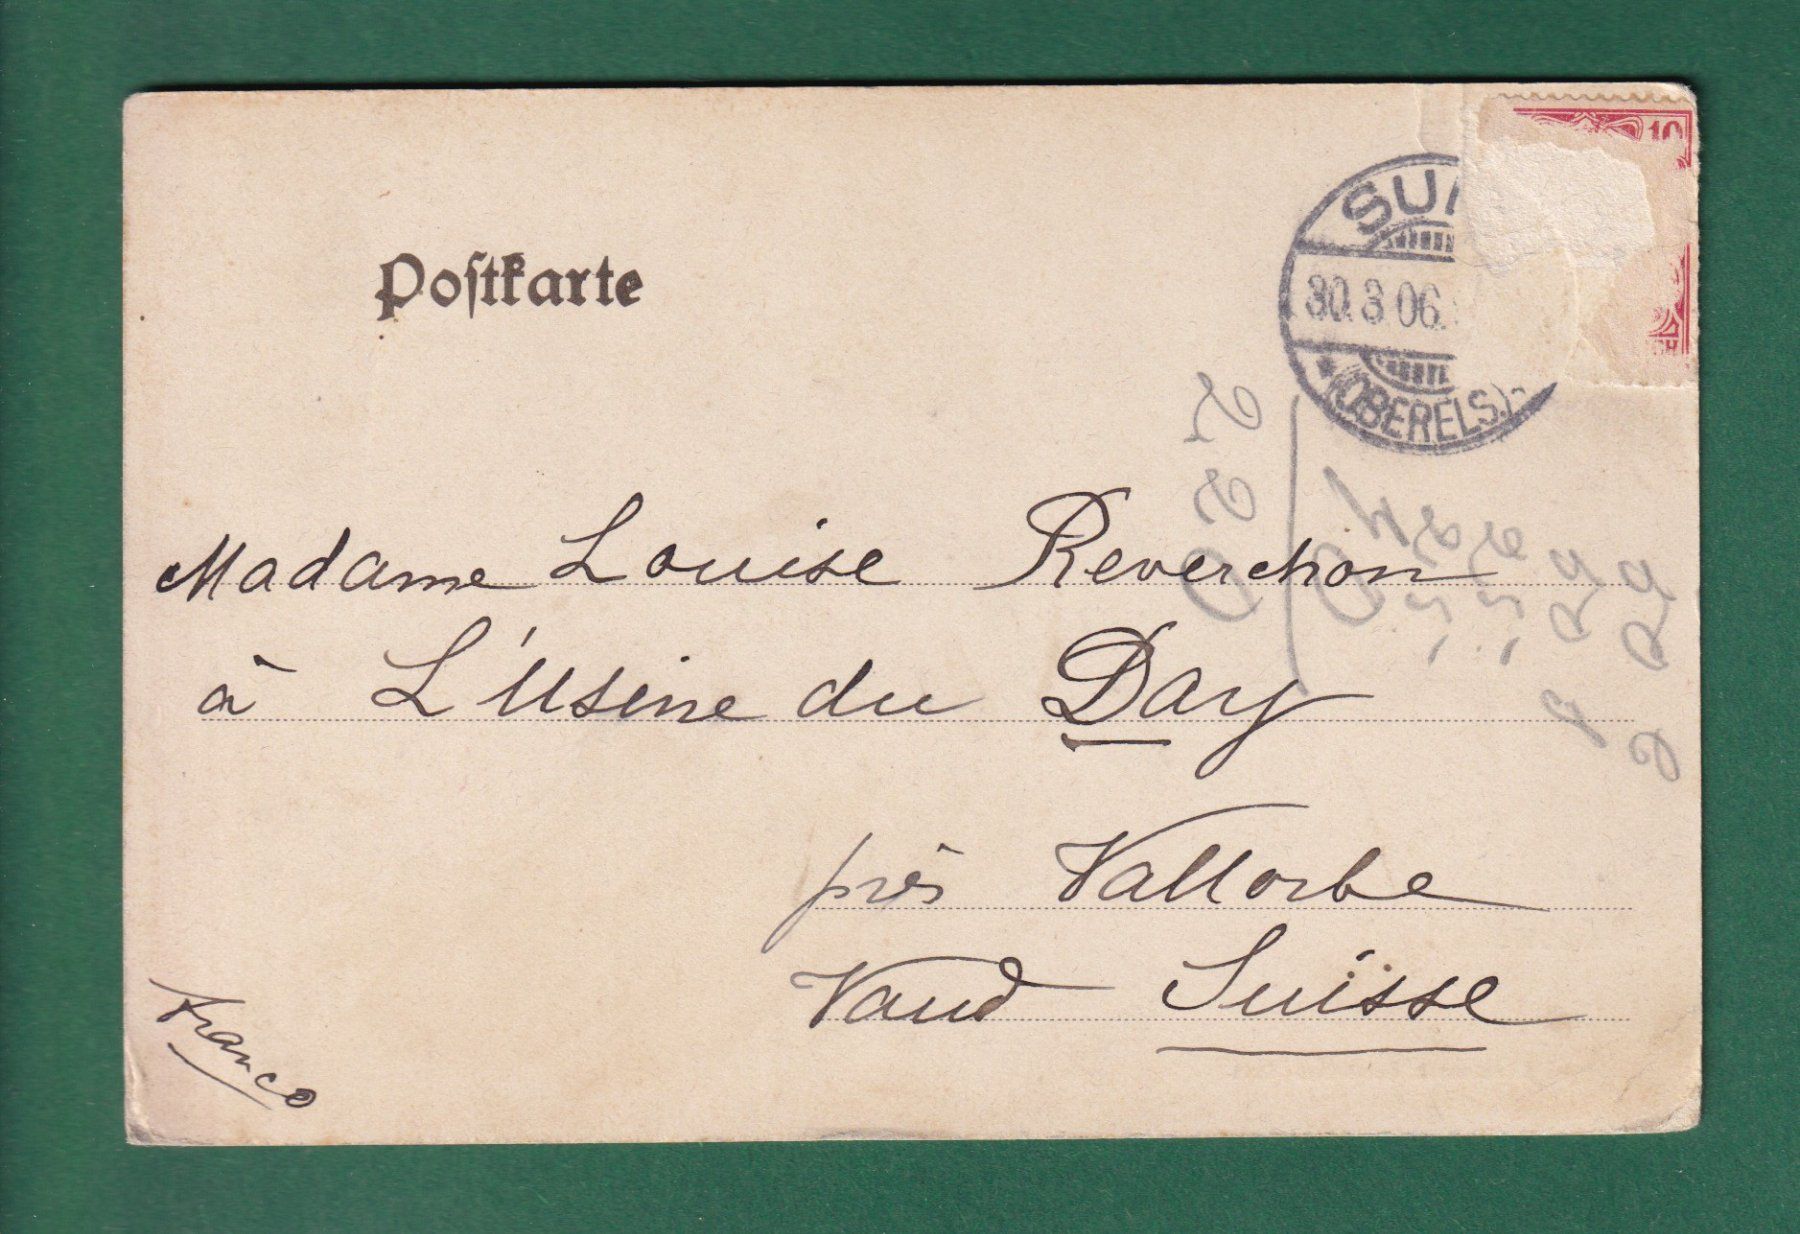 Postkarte
10
30.3.06.
* (OBERELS.)
CH
Madame Louise Reverchon
à L'Usine du Day
près Vallorbe
Vaud Suisse
Franco